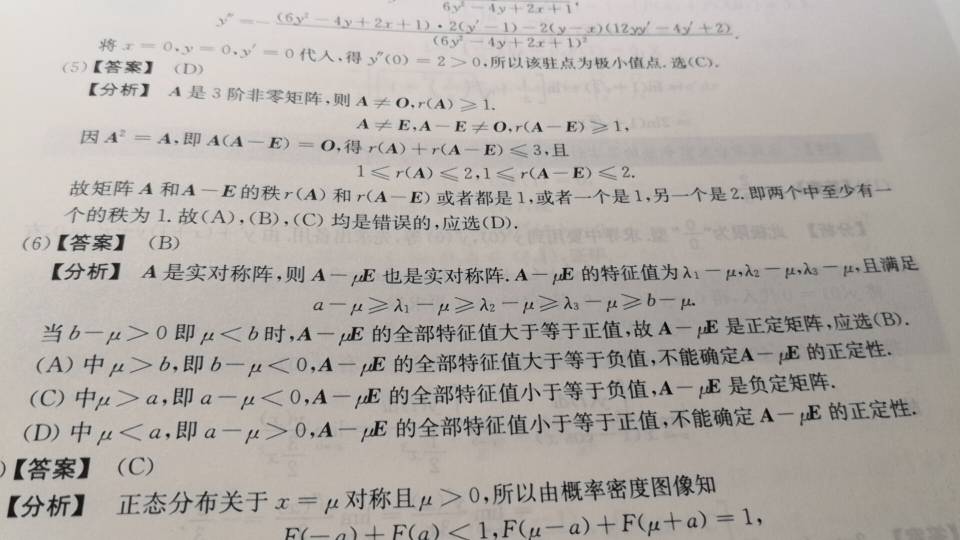 6y² − 4y + 2x + 1'
y″ = − (6y² − 4y + 2x + 1) · 2(y′ − 1) − 2(y − x)(12yy′ − 4y′ + 2) / (6y² − 4y + 2x + 1)² .
将 x = 0, y = 0, y′ = 0 代入, 得 y″(0) = 2 > 0, 所以该驻点为极小值点. 选(C).
(5)【答案】 (D)
【分析】 A 是 3 阶非零矩阵, 则 A ≠ O, r(A) ⩾ 1.
A ≠ E, A − E ≠ O, r(A − E) ⩾ 1,
因 A² = A, 即 A(A − E) = O, 得 r(A) + r(A − E) ⩽ 3, 且
1 ⩽ r(A) ⩽ 2, 1 ⩽ r(A − E) ⩽ 2.
故矩阵 A 和 A − E 的秩 r(A) 和 r(A − E) 或者都是 1, 或者一个是 1, 另一个是 2. 即两个中至少有一
个的秩为 1. 故(A), (B), (C) 均是错误的, 应选(D).
(6)【答案】 (B)
【分析】 A 是实对称阵, 则 A − μE 也是实对称阵. A − μE 的特征值为 λ₁ − μ, λ₂ − μ, λ₃ − μ, 且满足
a − μ ⩾ λ₁ − μ ⩾ λ₂ − μ ⩾ λ₃ − μ ⩾ b − μ.
当 b − μ > 0 即 μ < b 时, A − μE 的全部特征值大于等于正值, 故 A − μE 是正定矩阵, 应选(B).
(A) 中 μ > b, 即 b − μ < 0, A − μE 的全部特征值大于等于负值, 不能确定A − μE 的正定性.
(C) 中μ > a, 即 a − μ < 0, A − μE 的全部特征值小于等于负值, A − μE 是负定矩阵.
(D) 中 μ < a, 即 a − μ > 0, A − μE 的全部特征值小于等于正值, 不能确定 A − μE 的正定性.
)【答案】 (C)
【分析】 正态分布关于 x = μ 对称且 μ > 0, 所以由概率密度图像知
F(−a) + F(a) < 1, F(μ − a) + F(μ + a) = 1,